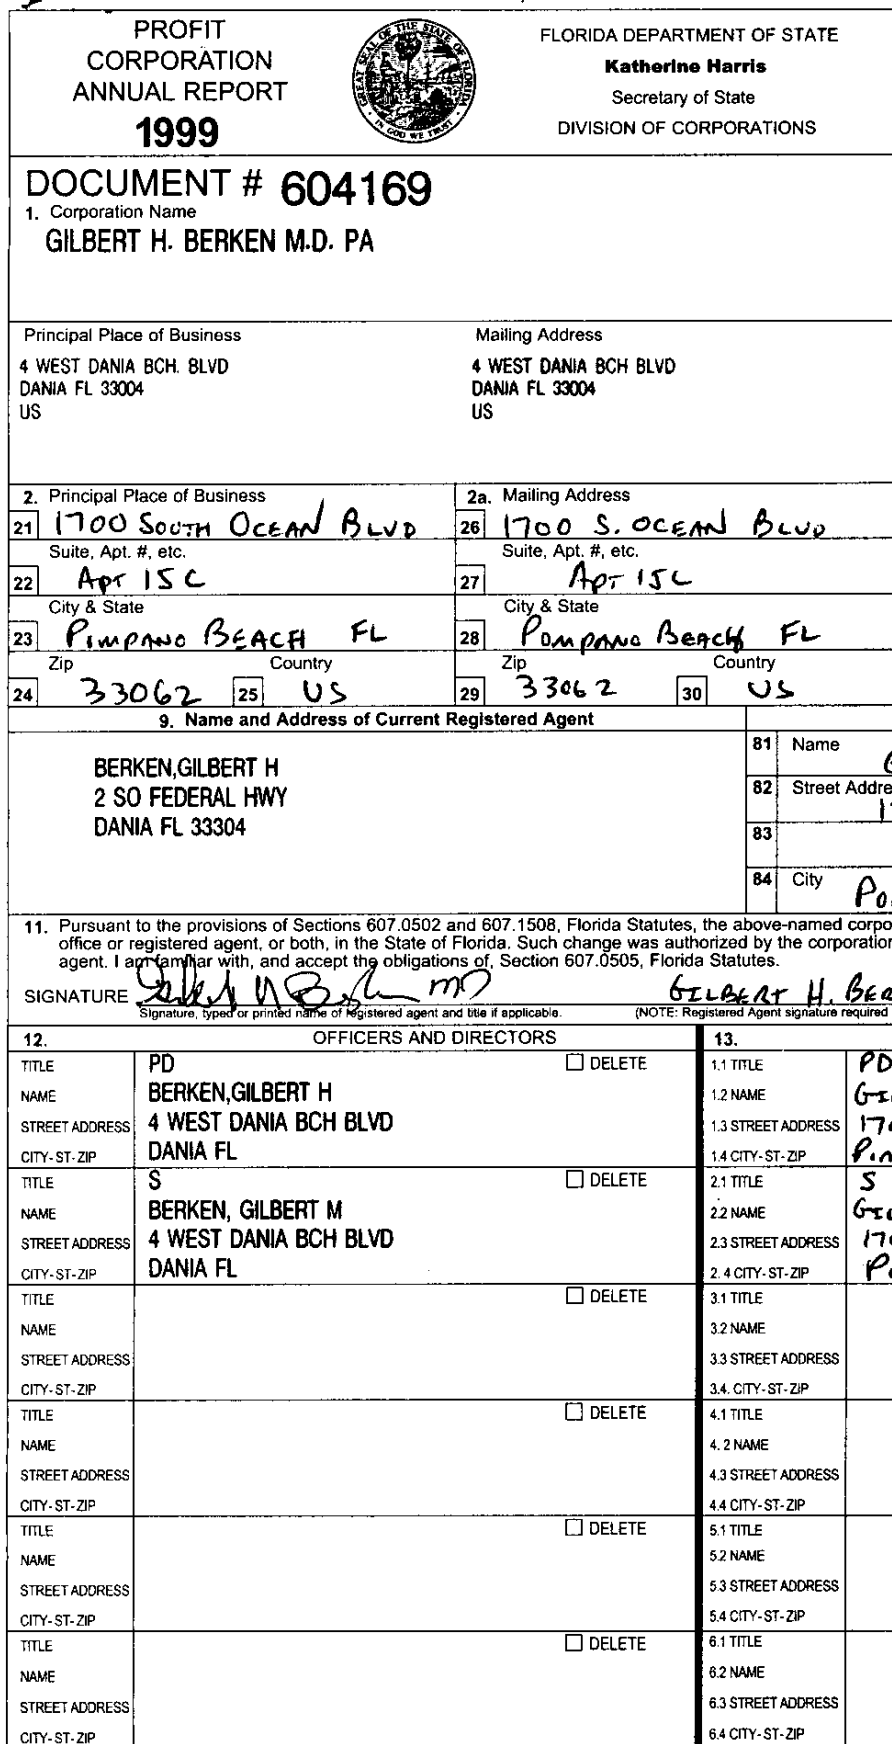 PROFIT
CORPORATION
ANNUAL REPORT
1999
GREAT SEAL OF THE STATE OF FLORIDA
IN GOD WE TRUST
FLORIDA DEPARTMENT OF STATE
Katherine Harris
Secretary of State
DIVISION OF CORPORATIONS
DOCUMENT # 604169
1. Corporation Name
GILBERT H. BERKEN M.D. PA
Principal Place of Business
4 WEST DANIA BCH. BLVD
DANIA FL 33004
US
Mailing Address
4 WEST DANIA BCH BLVD
DANIA FL 33004
US
2. Principal Place of Business
21 1700 SOUTH OCEAN BLVD
Suite, Apt. #, etc.
22 APT 15C
City & State
23 PIMPANO BEACH FL
Zip Country
24 33062 25 US
2a. Mailing Address
26 1700 S. OCEAN BLVD
Suite, Apt. #, etc.
27 APT 15C
City & State
28 POMPANO BEACH FL
Zip Country
29 33062 30 US
9. Name and Address of Current Registered Agent
BERKEN,GILBERT H
2 SO FEDERAL HWY
DANIA FL 33304
81 Name G
82 Street Addre
17
83
84 City Po
11. Pursuant to the provisions of Sections 607.0502 and 607.1508, Florida Statutes, the above-named corpo
office or registered agent, or both, in the State of Florida. Such change was authorized by the corporation
agent. I am familiar with, and accept the obligations of, Section 607.0505, Florida Statutes.
SIGNATURE MD GILBERT H. BER
Signature, typed or printed name of registered agent and title if applicable. (NOTE: Registered Agent signature required
12. OFFICERS AND DIRECTORS
TITLE PD DELETE
NAME BERKEN,GILBERT H
STREET ADDRESS 4 WEST DANIA BCH BLVD
CITY-ST-ZIP DANIA FL
TITLE S DELETE
NAME BERKEN, GILBERT M
STREET ADDRESS 4 WEST DANIA BCH BLVD
CITY-ST-ZIP DANIA FL
TITLE DELETE
NAME
STREET ADDRESS
CITY-ST-ZIP
TITLE DELETE
NAME
STREET ADDRESS
CITY-ST-ZIP
TITLE DELETE
NAME
STREET ADDRESS
CITY-ST-ZIP
TITLE DELETE
NAME
STREET ADDRESS
CITY-ST-ZIP
13.
1.1 TITLE PD
1.2 NAME GI
1.3 STREET ADDRESS 170
1.4 CITY-ST-ZIP
2.1 TITLE S
2.2 NAME GI
2.3 STREET ADDRESS 170
2.4 CITY-ST-ZIP Po
3.1 TITLE
3.2 NAME
3.3 STREET ADDRESS
3.4. CITY-ST-ZIP
4.1 TITLE
4.2 NAME
4.3 STREET ADDRESS
4.4 CITY-ST-ZIP
5.1 TITLE
5.2 NAME
5.3 STREET ADDRESS
5.4 CITY-ST-ZIP
6.1 TITLE
6.2 NAME
6.3 STREET ADDRESS
6.4 CITY-ST-ZIP